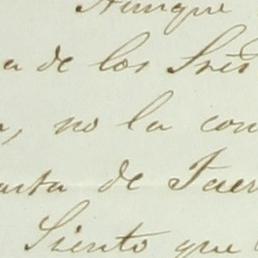 Aunque
a de los Sres
, no la con
arta de Fuer
Siento que